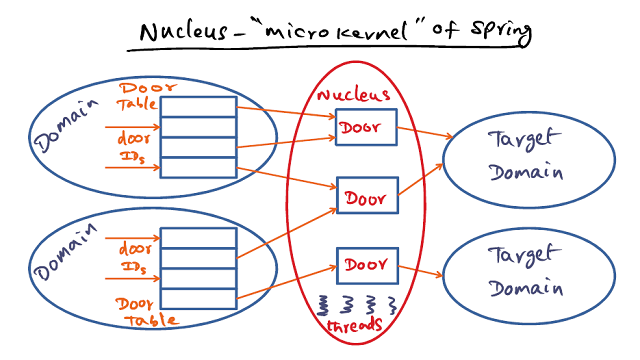 Nucleus - "microkernel" of Spring
Domain
Door
Table
door
IDs
Domain
door
IDs
Door
Table
Nucleus
Door
Door
Door
threads
Target
Domain
Target
Domain